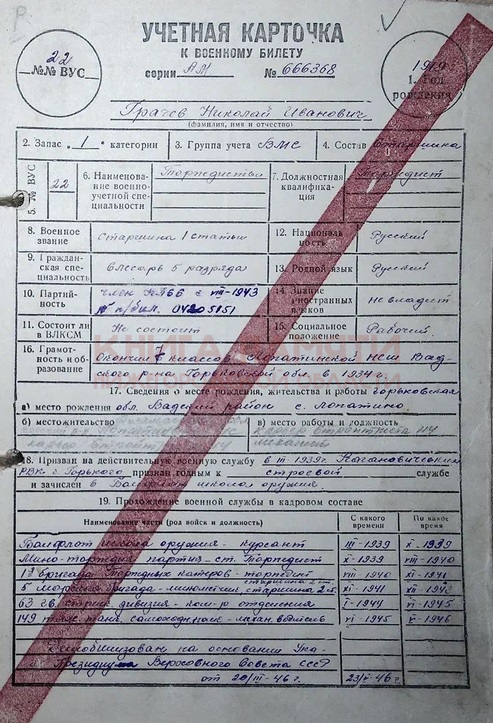 УЧЕТНАЯ КАРТОЧКА
К ВОЕННОМУ БИЛЕТУ
22
№№ ВУС
серии АМ № 666368
1919
1. Год
рождения
Грачев Николай Иванович
(фамилия, имя и отчество)
2. Запас 1 категории
3. Группа учета ВМС
4. Состав старшина
5. № ВУС
22
6. Наименова-
ние военно-
учетной спе-
циальности
Торпедисты
7. Должностная
квалифика-
ция
Торпедист
8. Военное
звание
Старшина 1 статьи
12. Националь-
ность
Русский
9. Граждан-
ская спе-
циальность
Слесарь 5 разряда
13. Родной язык
Русский
10. Партий-
ность
член КПСС с VIII-1943
№ п/бил. 04205851
14. Знание
иностранных
языков
Не владеет
11. Состоит ли
в ВЛКСМ
Не состоит
15. Социальное
положение
Рабочий
16. Грамот-
ность и об-
разование
Окончил 7 классов Лопатинской нсш Вад-
ского р-на Горьковской обл. в 1934 г.
КНИГА ПАМЯТИ
17. Сведения о месте рождения, жительства и работы
Горьковская
а) место рождения обл. Вадский район с. Лопатино.
б) местожительство
в) место работы и должность
18. Призван на действительную военную службу в III 1939 г. Кагановическим
РВК г. Горького признан годным к строевой службе
и зачислен в школа оружия.
19. Прохождение военной службы в кадровом составе
Наименование части (род войск и должность)
С какого
времени
По какое
время
школа оружия - курсант III-1939 X-1939
Мино-торпедн. партия - ст. Торпедист X-1939 VIII-1940
1я бригада Торпедных катеров - торпедист VIII-1940 XI-1941
5 Морская бригада - минометчик, старшина 2 ст. XI-1941
63 гв. стрелк. дивизия - ком-р отделения I-1944 VI-1945
149 самоходчик - механ. водитель VI-1945 V-1946
Демобилизован на основании Ука-
Президиума Верховного Совета СССР
от 20/III-46 г. 23/V-46 г.